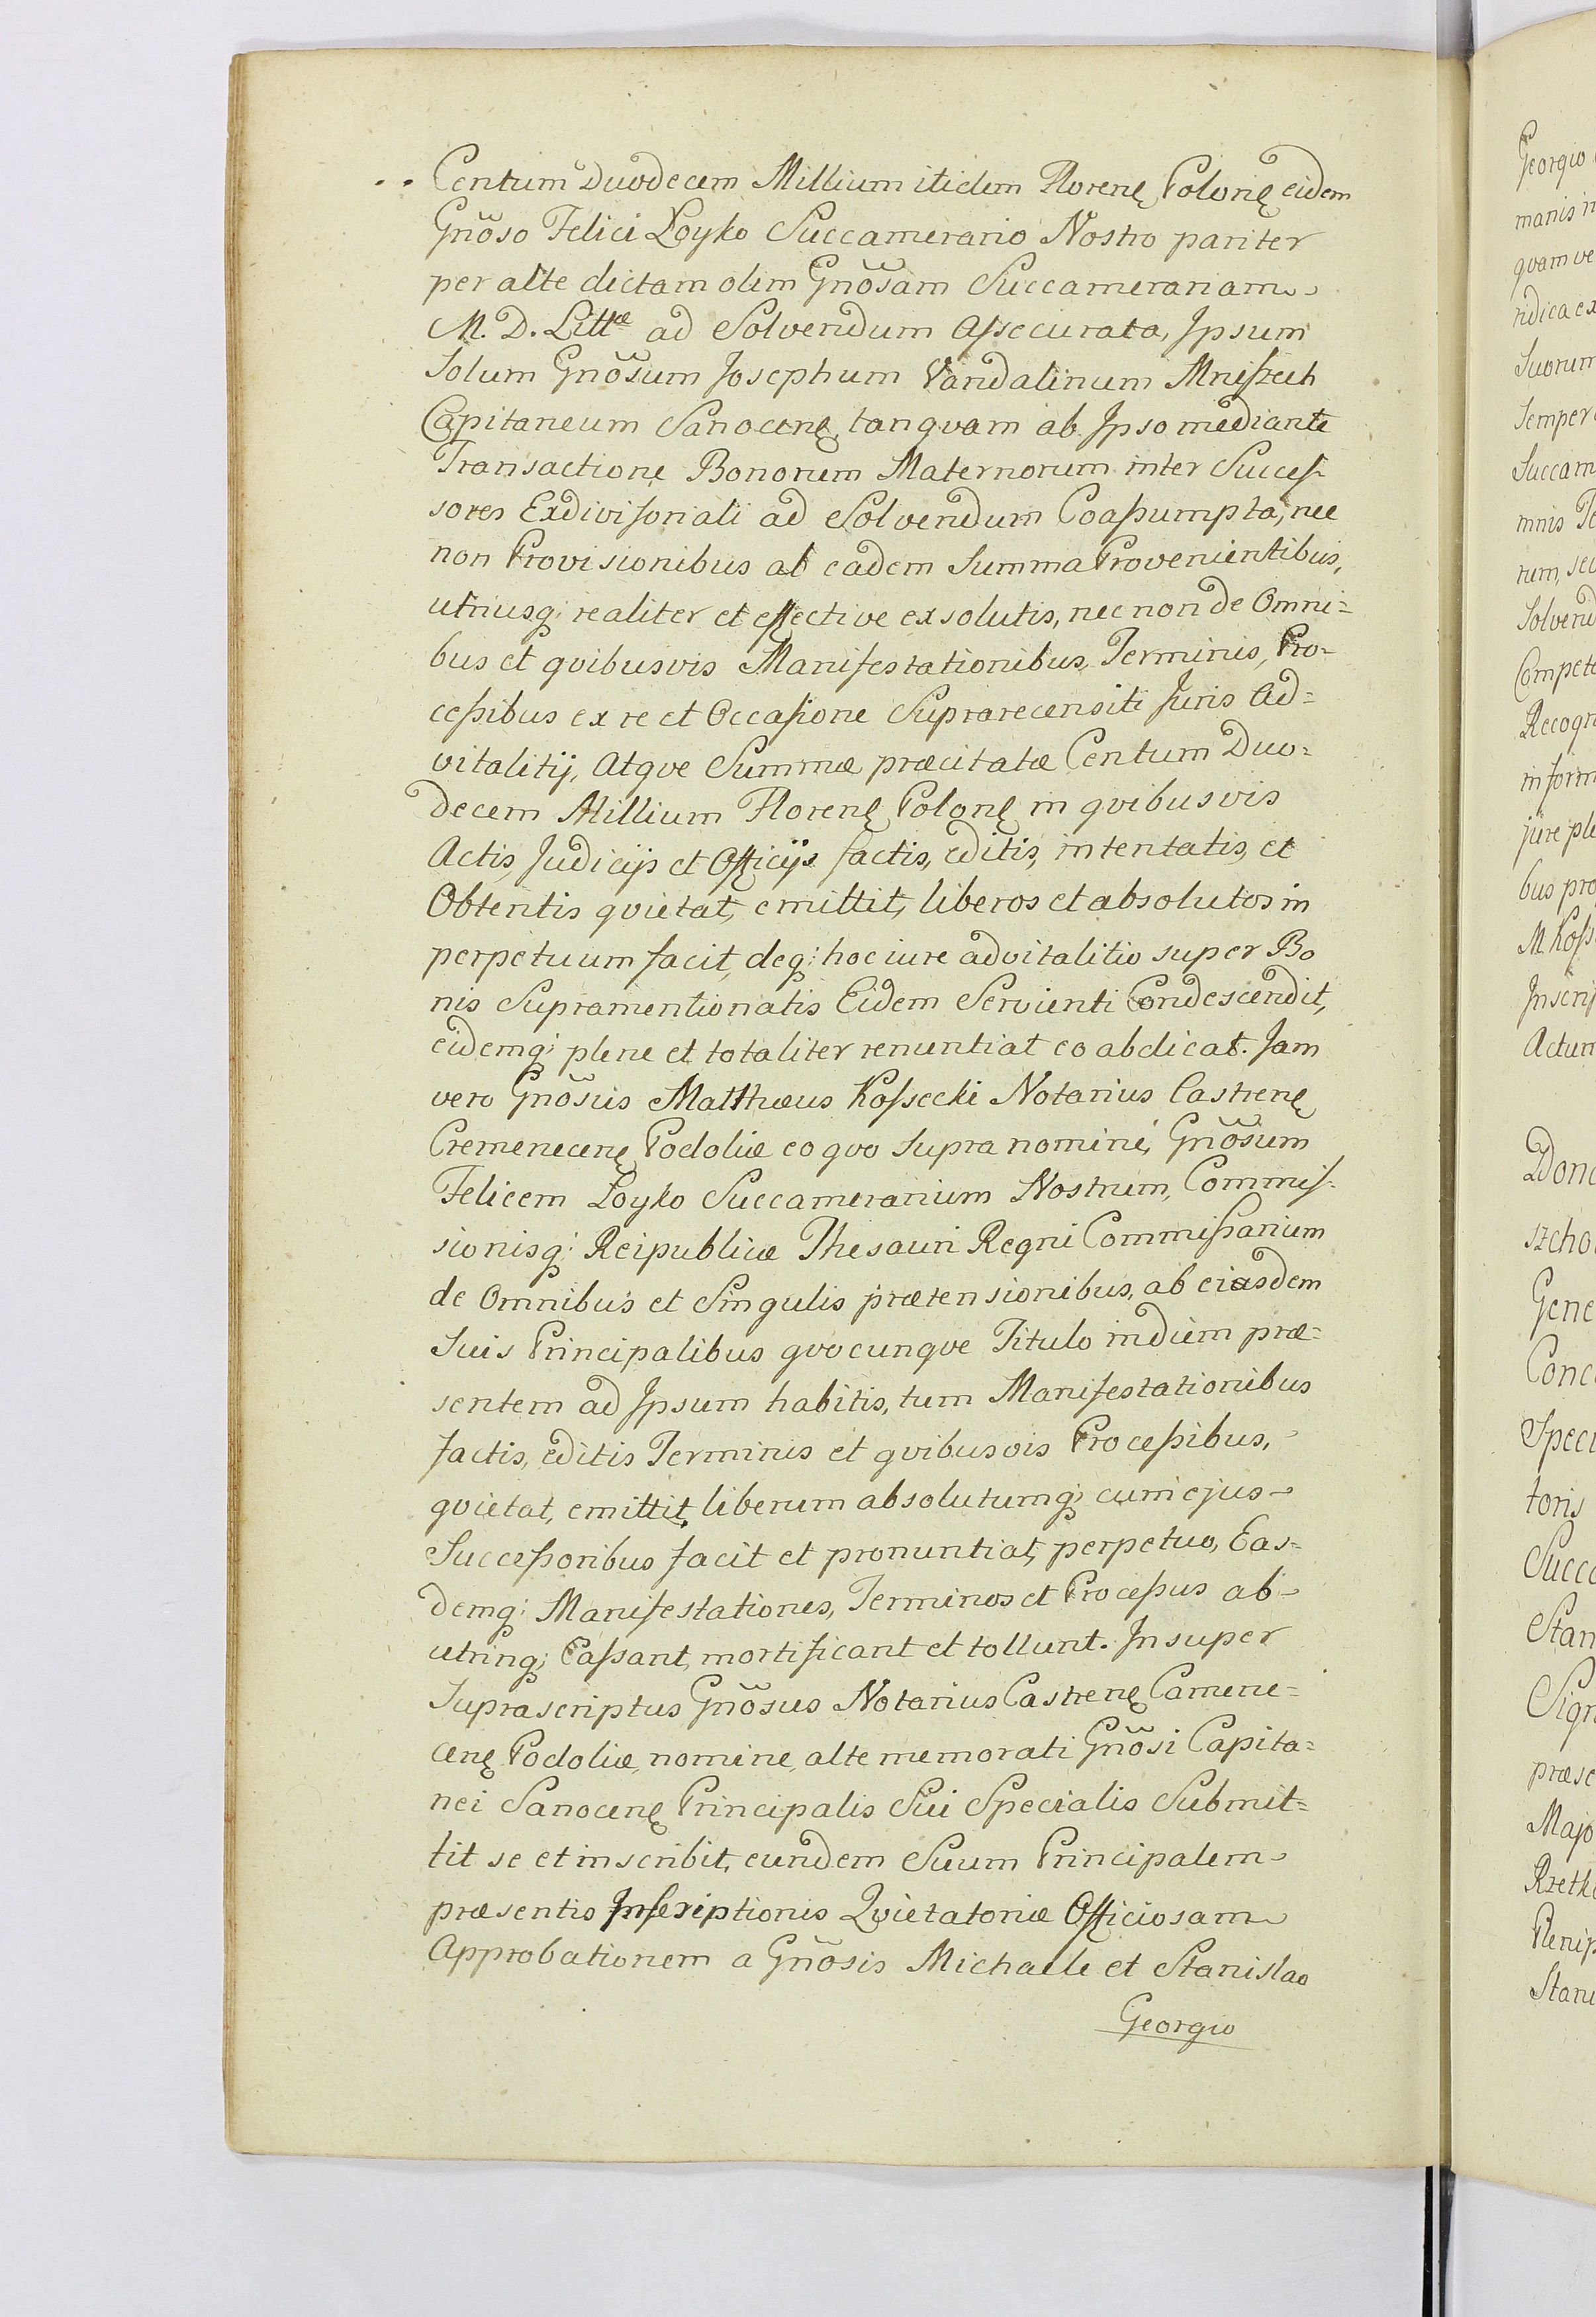 Centum Duodecem Millium itidem Florenę Polonę eidem
Gnõso Felici Łoyko Succamerario Nostro pariter
per alte dictam olim Gnõsam Succamerariam
M. D. Littæ ad Solvendum Assecurata, Ipsum
Solum Gnõsum Josephum Vandalinum Mniszech
Capitaneum Sanocenę, tanquam ab Ipso mediante
Transactione Bonorum Maternorum inter Succes-
sores Exdivisoriali ad Solvendum Coassumpta, nec
non Provisionibus ab eadem Summa Provenientibus,
utriusq; realiter et effective exsolutis, nec non de Omni=
bus et quibusvis Manifestationibus, Terminis, Pro-
cessibus ex re et Occasione Suprarecensiti Juris Ad=
vitalitij, Atque Summæ præcitatæ Centum Duo=
decem Millium Florenę Polonę in quibusvis
Actis, Judicijs et Officijs factis, editis, intentatis, et
Obtentis quietat, emittit, liberos et absolutos in
perpetuum facit, deq; hoc iure advitalitio super Bo
nis Supramentionatis Eidem Servienti Condescendit,
eidemq; plene et totaliter renuntiat eo abdicat. Jam
vero Gnõsus Matthæus Kossecki Notarius Castrenę
Cremenecenę Podoliæ eo quo supra nomine, Gnõsum
Felicem Łoyko Succamerarium Nostrum, Commis-
sionisq; Reipublicæ Thesauri Regni Commissarium
de Omnibus et Singulis prætensionibus, ab eiusdem
Suis Principalibus quocunque Titulo indiem præ=
sentem ad Ipsum habitis, tum Manifestationibus
factis, editis Terminis et quibusvis Processibus,
quietat, emittit, liberum absolutumq; cum ejus
Successoribus facit et pronuntiat, perpetuo, Eas=
demq; Manifestationes, Terminos et Processus ab
utrinq; Cassant, mortificant et tollunt. Insuper
Suprascriptus Gnõsus Notarius Castrenę Camene=
cenę Podoliæ, nomine, alte memorati Gnõsi Capita=
nei Sanocenę Principalis Sui Specialis Submit=
tit se et inscribit, eundem Suum Principalem
præsentis Inscriptionis Quietatoriæ Officiosam
Approbationem a Gnõsis Michaele et Stanislao
Georgio
Georgio
manis in
quam ve
ridica ex
Suorum
Semper
Succam
mnis Te
rum, sec
Solvend
Compete
Recogn
in form
jure ple
bus pro
M. Koss
Inscrip
Actum
Dona
szcho
Gene
Conc
Speci
toris
Succa
Stan
Sign
præse
Majo
Rzetk
Plenip
Stani